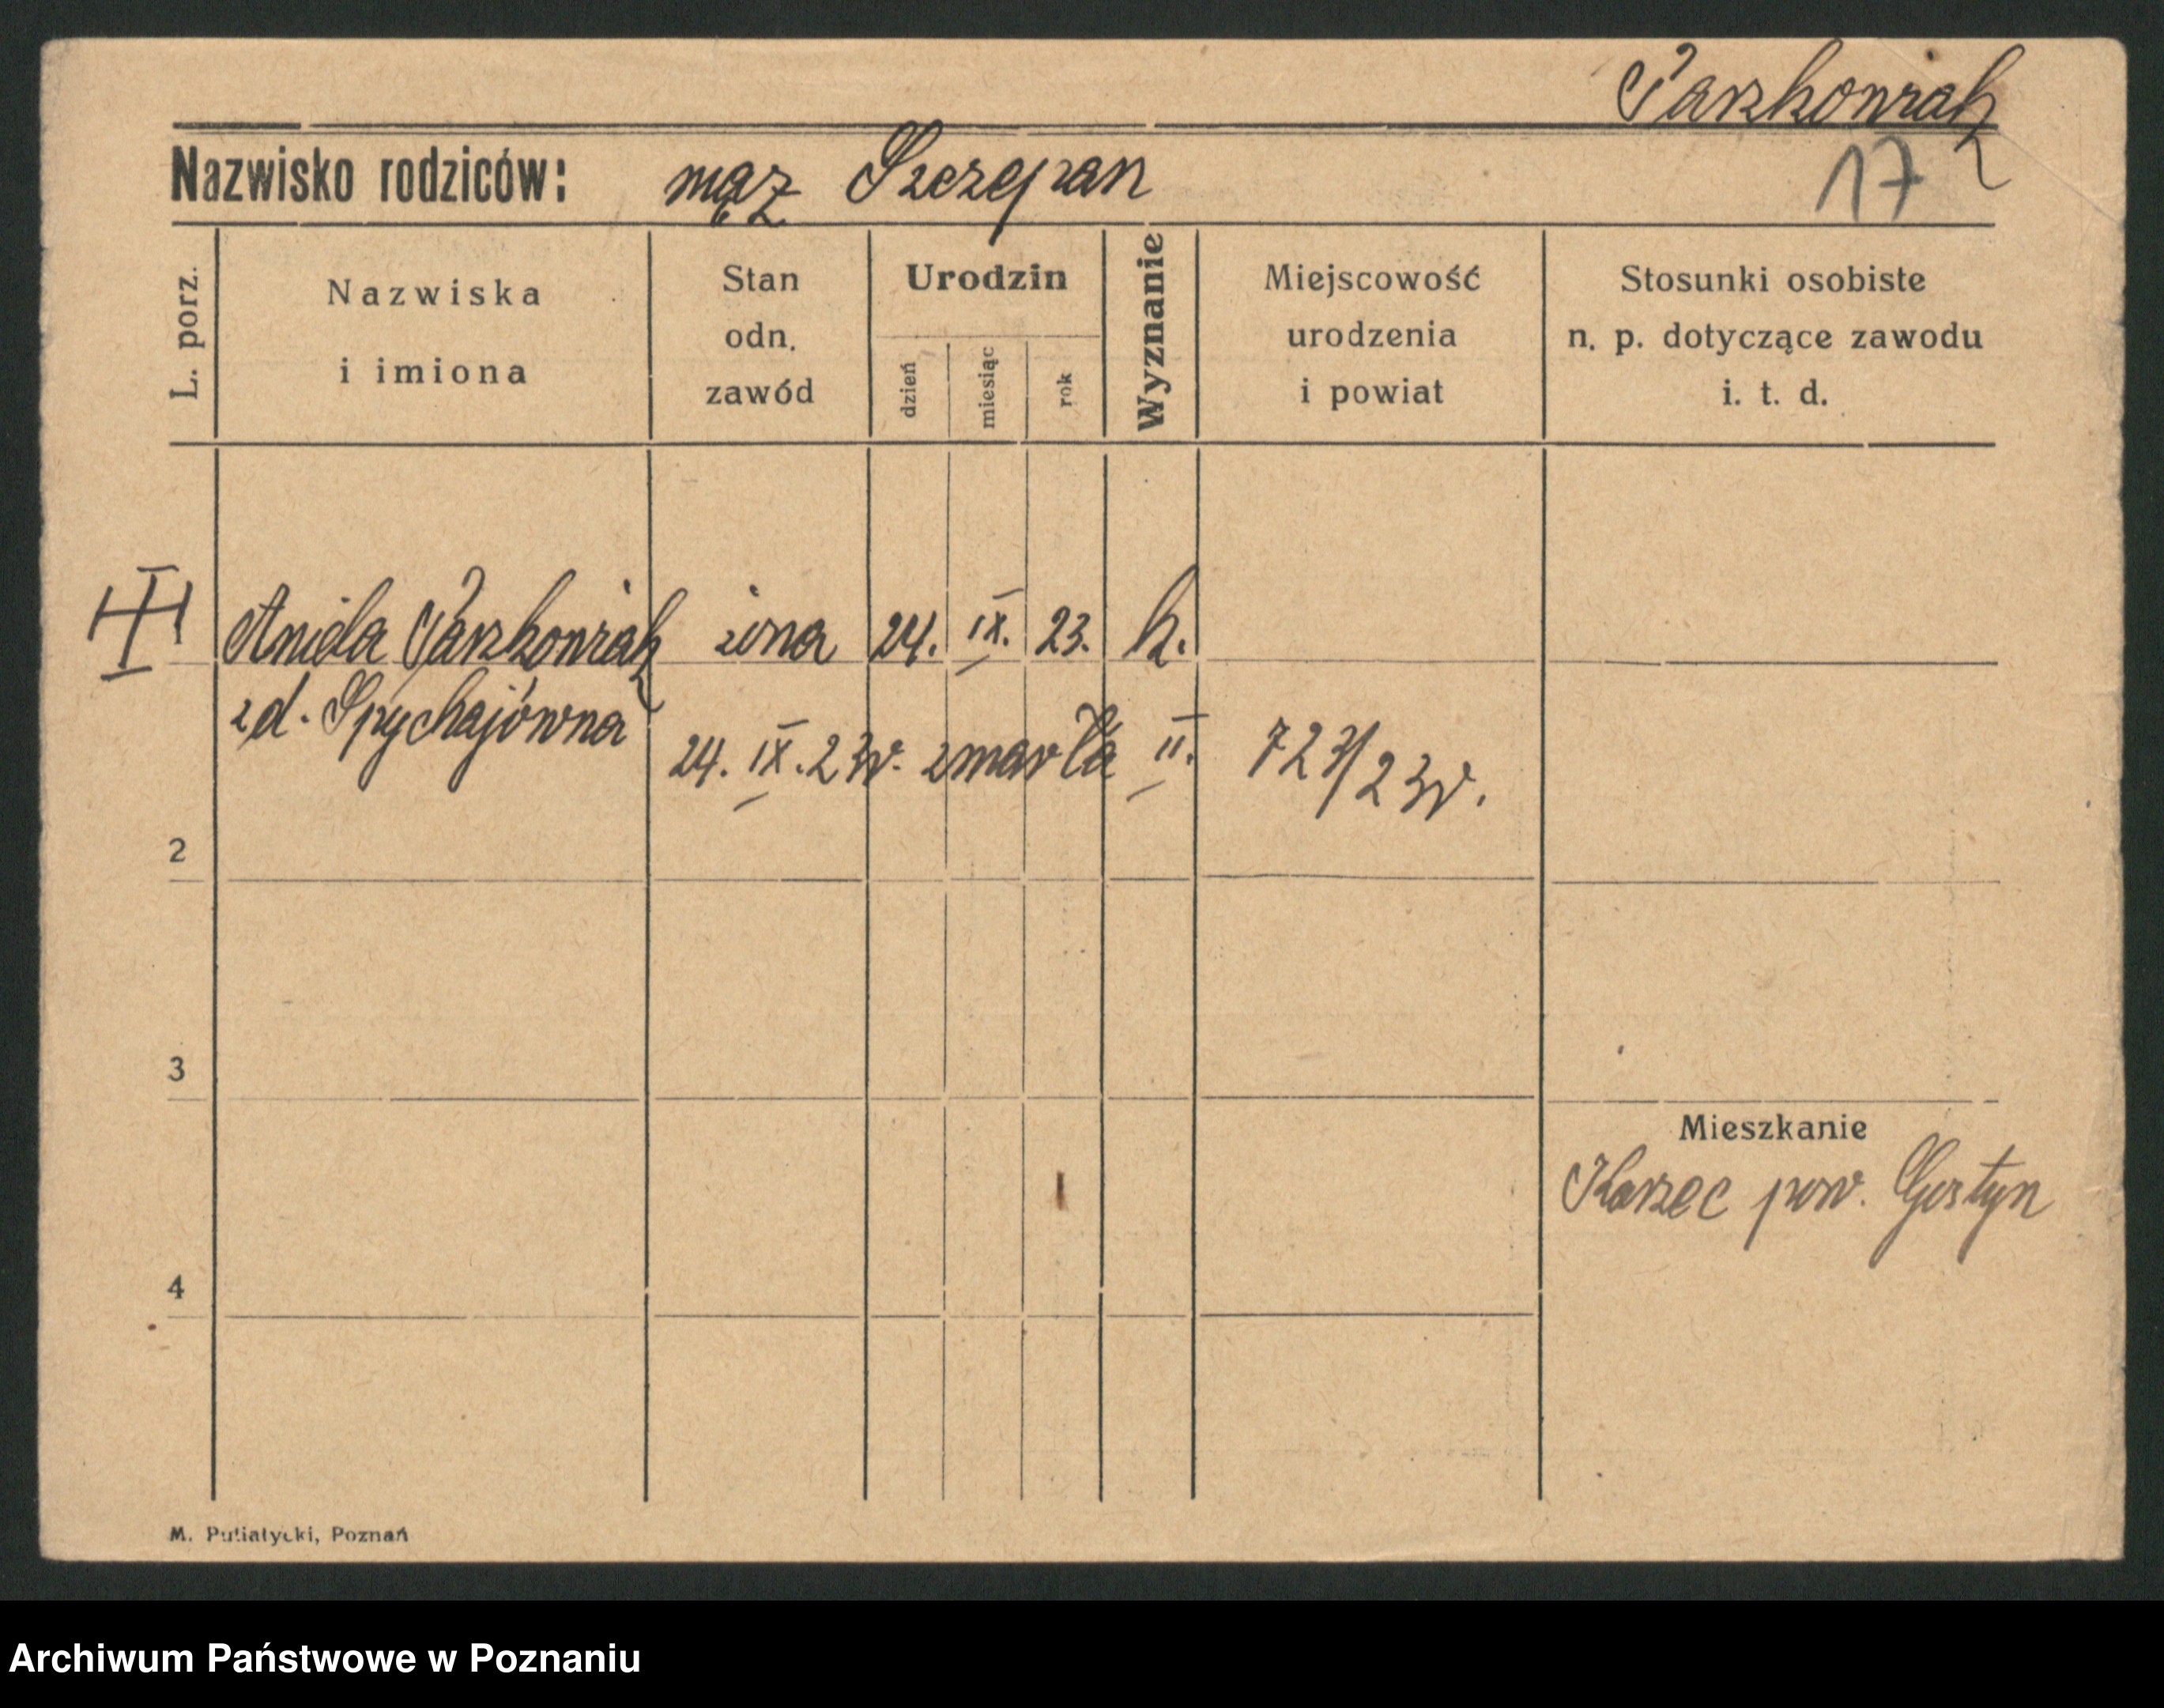 Parzkowiak
Nazwisko rodziców: mąż Szczepan 17
L. porz.
Nazwiska
i imiona
Stan
odn.
zawód
Urodzin
dzień
miesiąc
rok
Wyznanie
Miejscowość
urodzenia
i powiat
Stosunki osobiste
n. p. dotyczące zawodu
i. t. d.
Aniela Parzkowiak żona 24. IX. 23. k.
zd. Spychajówna
24. IX. 23r. zmarła II. 723/23r.
2
3
Mieszkanie
Karzec pow. Gostyn
4
M. Putiatycki, Poznań
Archiwum Państwowe w Poznaniu